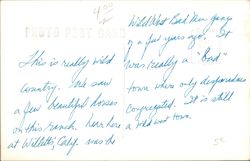 4.00
PHOTO POST CARD
This is really wild
country. We saw
a few beautiful horses
on this ranch. here
at Willetts, Calif. was the
Wild West Bad Men gangs
of a few years ago. It
was really a "Bad"
town where only desperadoes
Congregated. It is still
a wild west town.